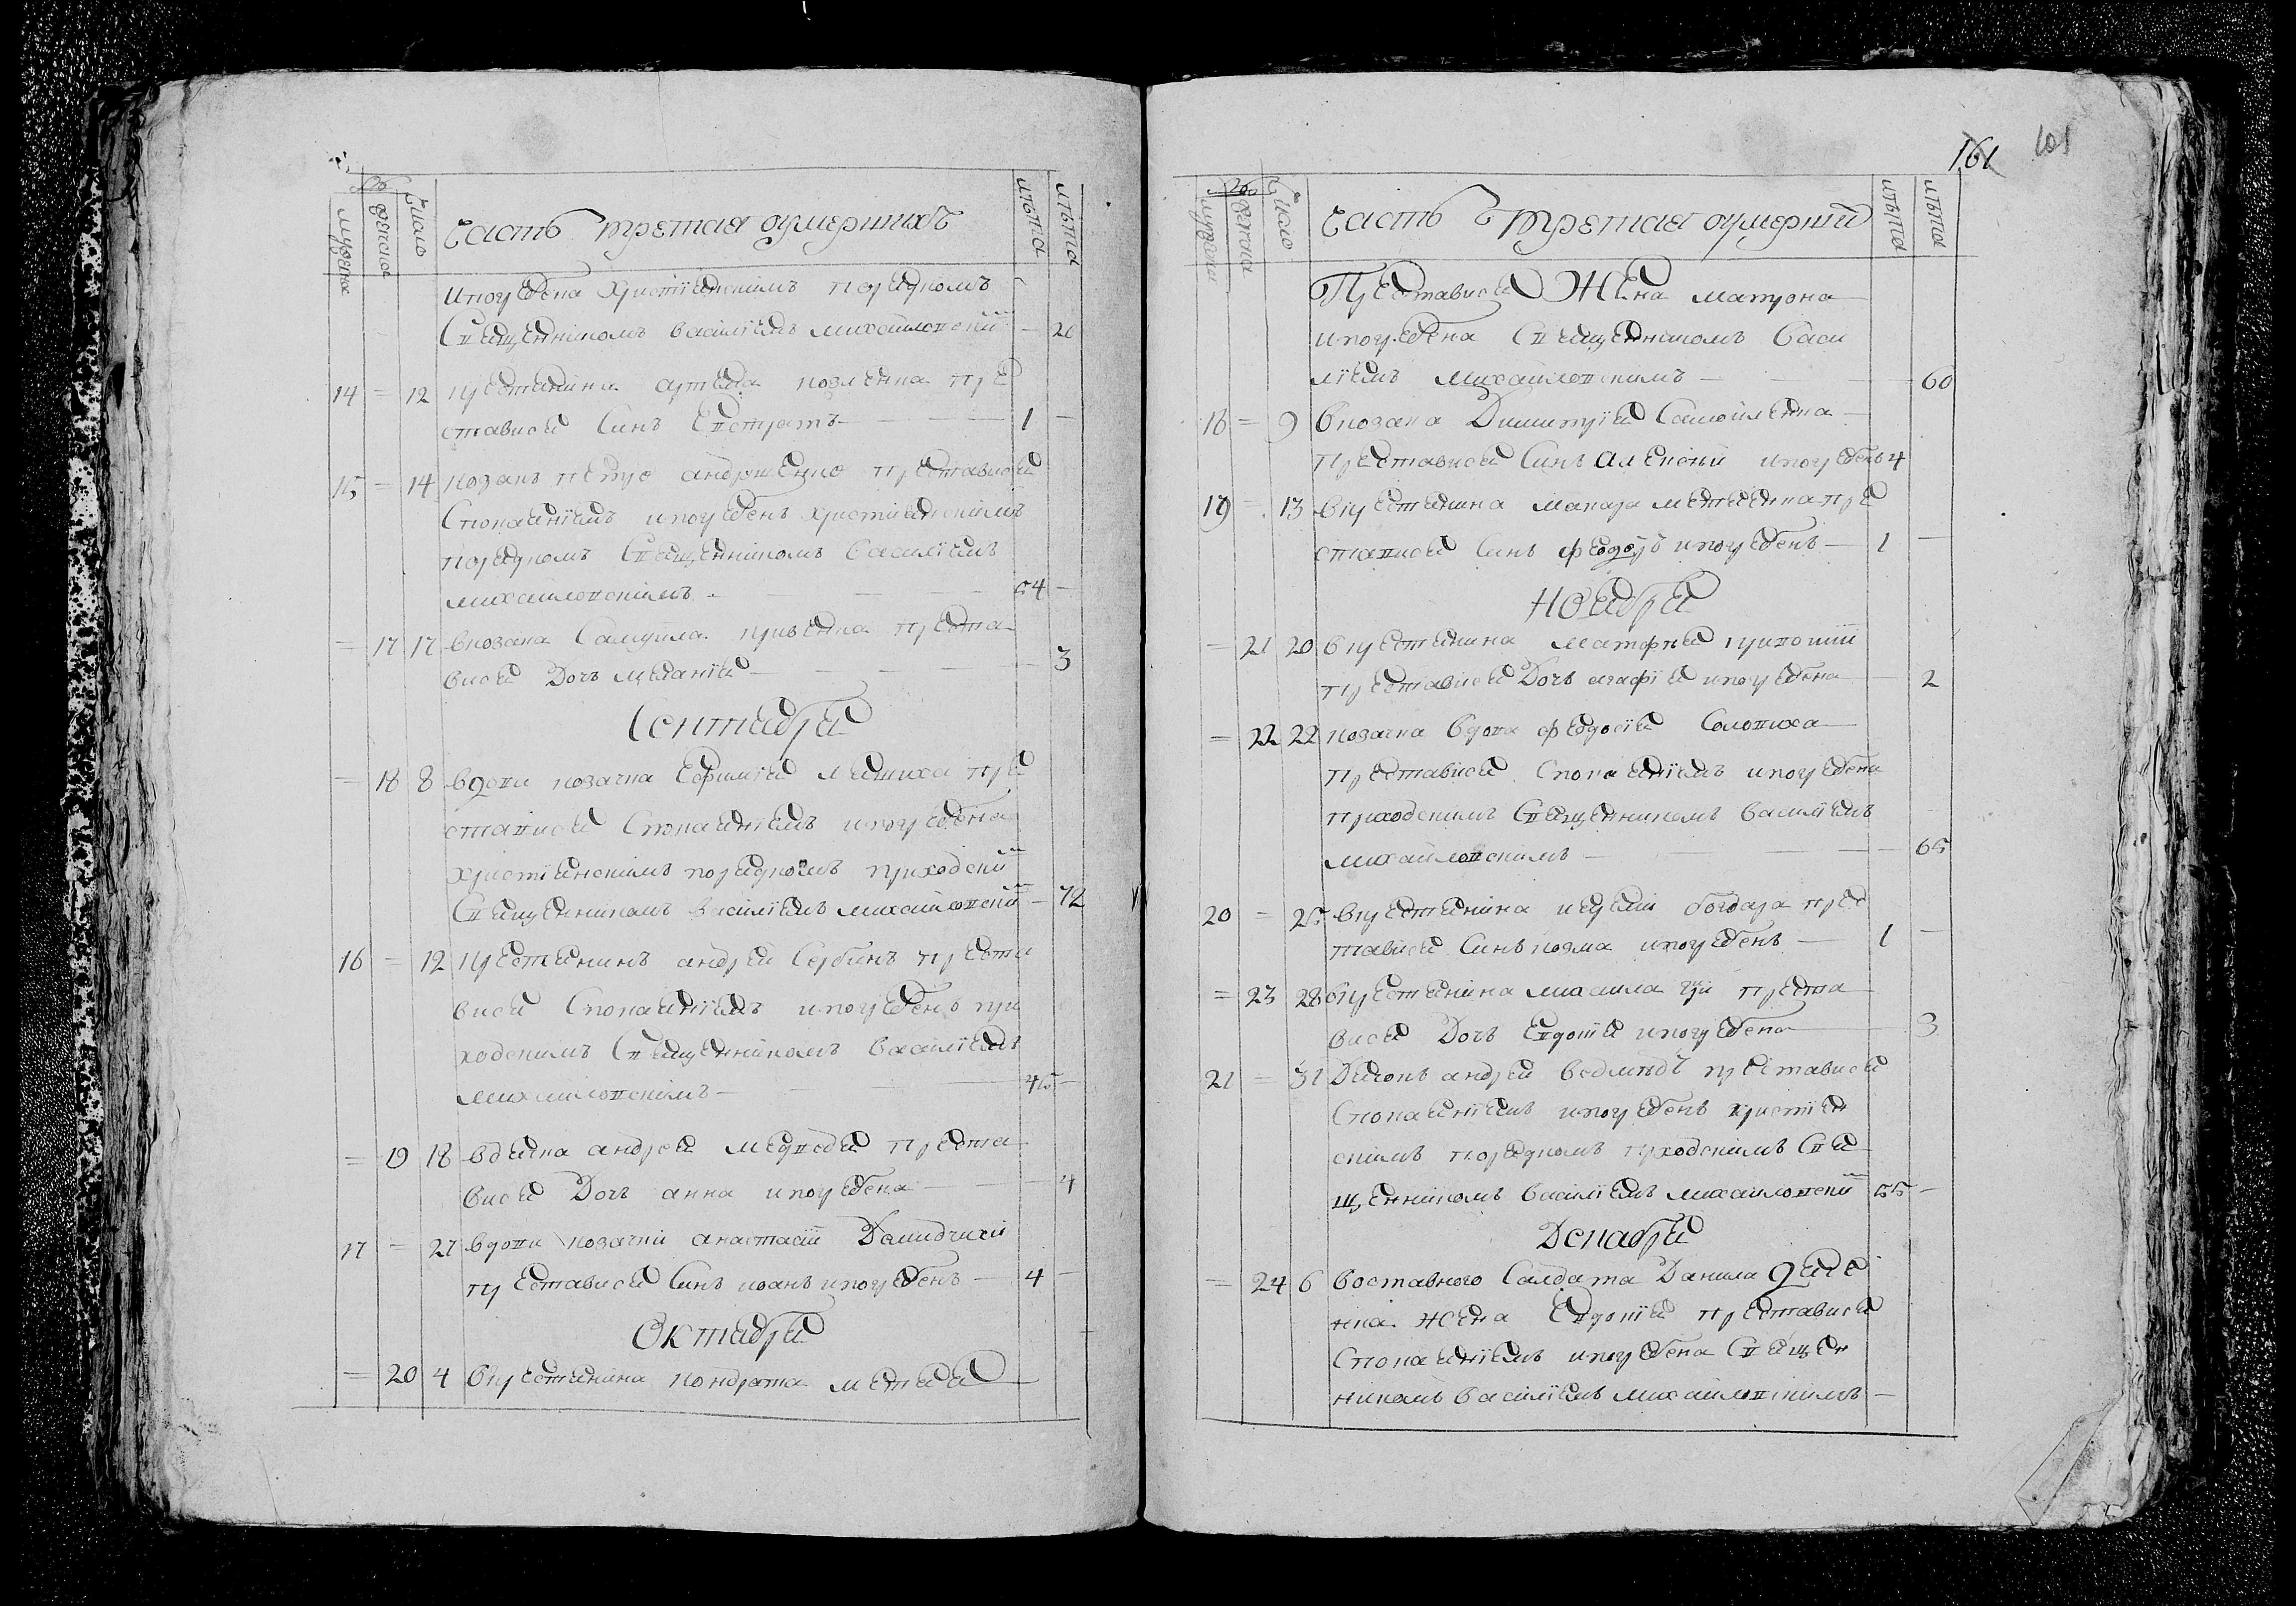 Часть третая оумершихъ
лѣта
лѣта
Число
женска
мужеска
ипогребена христіянскимъ порядкомъ
Священникомъ василіемъ михайловскій — 20
14 = 12 крестянина артема козленка пре
ставися Синъ Евстратъ — 1 —
15 = 14 козакъ петро андрющенко преставися
Спокаяніемъ ипогребенъ христіянскимъ
порядкомъ Священникомъ василіемъ
михайловскимъ — 54 —
= 17 17 вкозака Самуила кривенка преста
вися Дочъ меланія — 3
Сентября
= 18 8 вдова козачка Ефимія пре
ставися Спокаяніемъ ипогребена
христіянскимъ порядкомъ приходскій
Священникомъ василіемъ михайловскій — 72
16 = 12 Крестянинъ андрей Сербинъ преста
вися Спокаяніемъ ипогребенъ при
ходскимъ Священникомъ василіемъ
михайловскимъ — 45 —
= 19 18 вдяка андрея медведя преста
вися Дочъ анна ипогребена — 4
17 = 27 вдови козачки анастасіи Демидчихи
преставися Синъ иоанъ ипогребенъ — 4 —
Октября
= 20 4 вкрестянина кондрата
161 101
Часть третая оумерший
лѣта
лѣта
Число
женска
мужеска
Преставися Жена матрона
ипогребена Священникомъ Васи
ліемъ михайловскимъ — 60
18 = 9 вкозака Димитрія Самойленка
преставися Синъ Алексий ипогребенъ 4
19 = 13 вкрестянина макара пре
ставися Синъ феодоръ ипогребенъ — 1 —
Ноября
= 21 20 вкрестянина матфея
преставися Дочъ агафія ипогребена — 2
= 22 22 козачка вдова феодосія Соловиха
преставися Спокаяніемъ ипогребена
приходскимъ Священникомъ василіемъ
михайловскимъ — 65
20 = 25 вкрестянина иереміи бондара прес
тавися Синъ козма ипогребенъ — 1 —
= 23 28 вкрестянина михаила преста
вися Дочъ Евдокія ипогребена — 3
21 = 31 Дяконъ андрей преставися
Спокаяніемъ ипогребенъ христіян
скимъ порядкомъ прходскимъ Свя
щенникомъ василіемъ михайловскій 55 —
Декабря
= 24 6 воставного Салдата Данила
нка жена Евдокія преставися
Спокаяніемъ ипогребена Священ
никомъ василіемъ михайловскимъ —